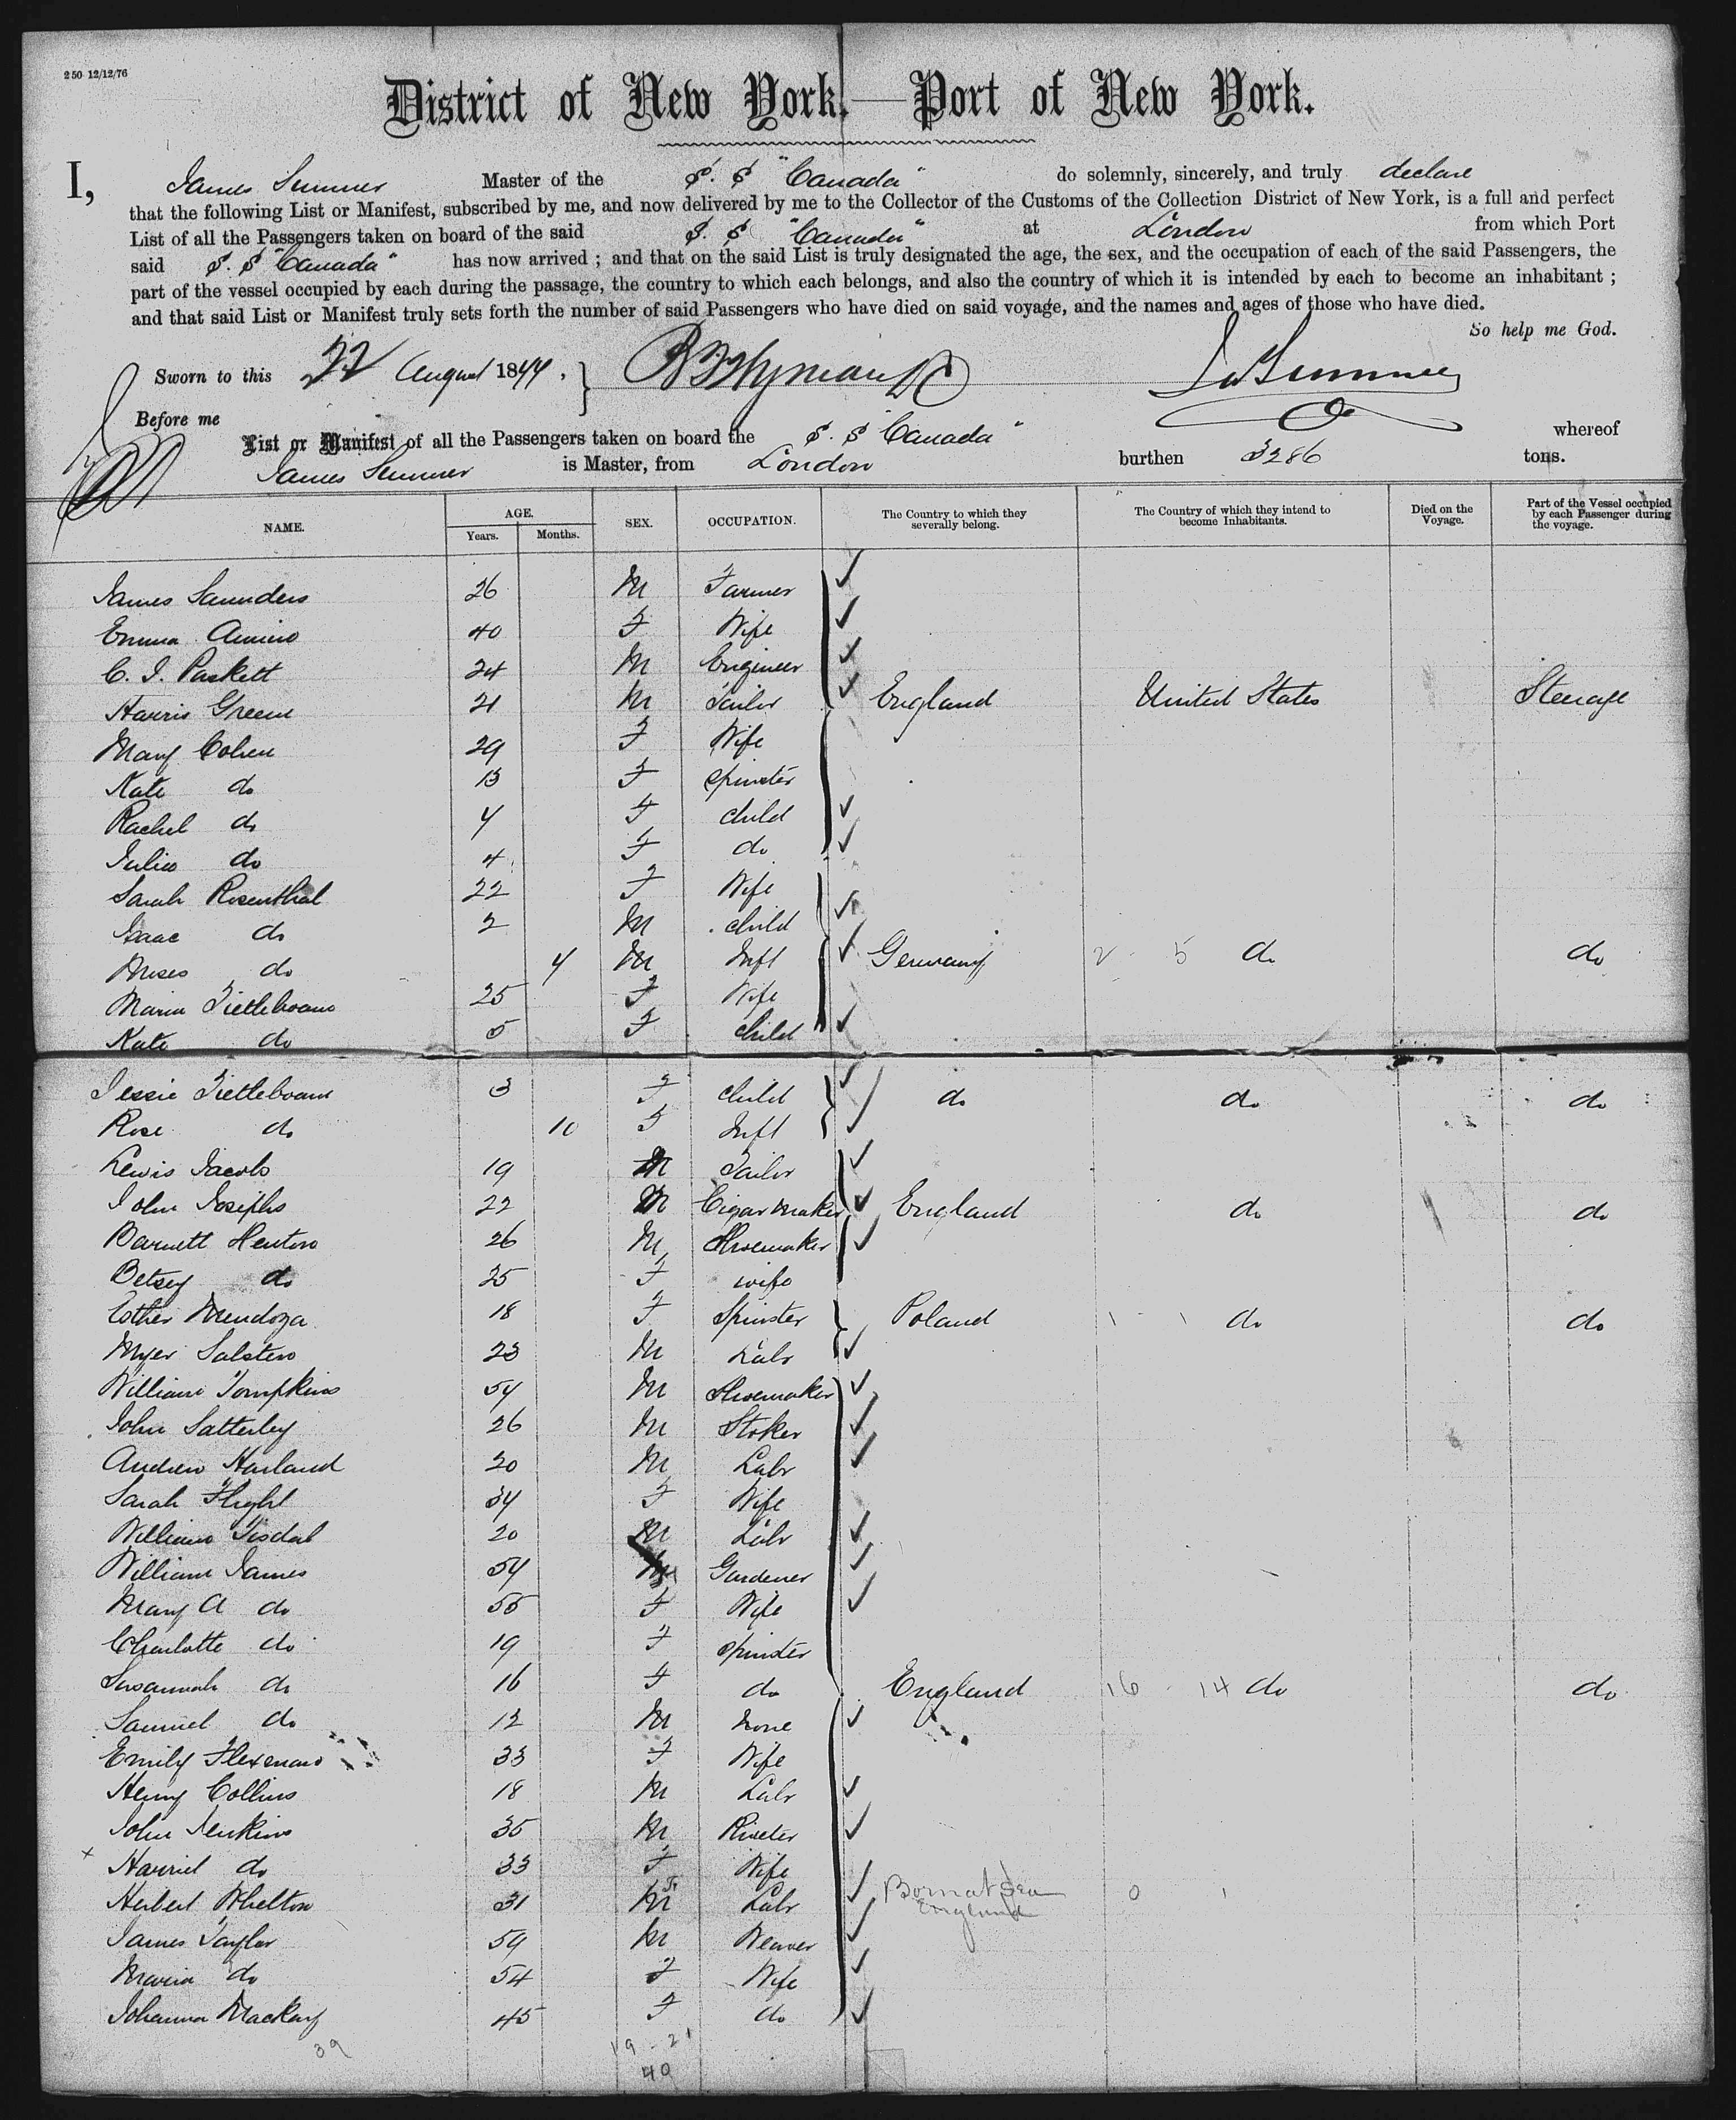 250 12/12/76
District of New York.—Port of New York.
I, James Sumner Master of the S. S "Canada" do solemnly, sincerely, and truly declare
that the following List or Manifest, subscribed by me, and now delivered by me to the Collector of the Customs of the Collection District of New York, is a full and perfect
List of all the Passengers taken on board of the said S. S "Canada" at London from which Port
said S. S "Canada" has now arrived ; and that on the said List is truly designated the age, the sex, and the occupation of each of the said Passengers, the
part of the vessel occupied by each during the passage, the country to which each belongs, and also the country of which it is intended by each to become an inhabitant ;
and that said List or Manifest truly sets forth the number of said Passengers who have died on said voyage, and the names and ages of those who have died.
So help me God.
Sworn to this 22 August 1877. Jas Sumner
Before me
List or Manifest of all the Passengers taken on board the S. S "Canada" whereof
James Sumner is Master, from London burthen 3286 tons.
NAME. AGE. Years. Months. SEX. OCCUPATION. The Country to which they severally belong. The Country of which they intend to become Inhabitants. Died on the Voyage. Part of the Vessel occupied by each Passenger during the voyage.
James Saunders 26 M Farmer
Emma 40 F Wife
C. J. Paskett 24 M Engineer
Harris Green 21 M Tailor England United States Steerage
Mary Cohen 29 F Wife
Kate do 13 F Spinster
Rachel do 7 F child
Julia do 4 F do
Sarah Rosenthal 22 F Wife
Isaac do 2 M child
Moses do 4 M Inft Germany 2 5 do do
Maria Tietleboam 25 F Wife
Kate do 5 F child
Jessie Tietleboam 3 F child do do do
Rose do 10 F Inft
Lewis Jacobs 19 M Tailor
John Josephs 22 M Cigar maker England do do
Barnett Henton 26 M Shoemaker
Betsey do 25 F wife
Esther Mendoza 18 F Spinster Poland 1 1 do do
Myer Salsten 23 M Labr
William Tompkins 54 M Shoemaker
John Satterley 26 M Stoker
Andrew Harland 20 M Labr
Sarah Flight 34 F Wife
William Tisdal 20 M Labr
William James 54 M Gardener
Mary A do 55 F Wife
Charlotte do 19 F Spinster
Susannah do 16 F do England 16 14 do do
Samuel do 12 M none
Emily Flexman 33 F Wife
Henry Collins 18 M Labr
John Jenkins 35 M Riveter
x Harriet do 33 F Wife
Herbert Whelton 31 M Labr Born at Sea 0 1
England
James Taylor 59 M Weaver
Maria do 54 F Wife
Johanna Mackay 45 F do
39 19 - 21
40